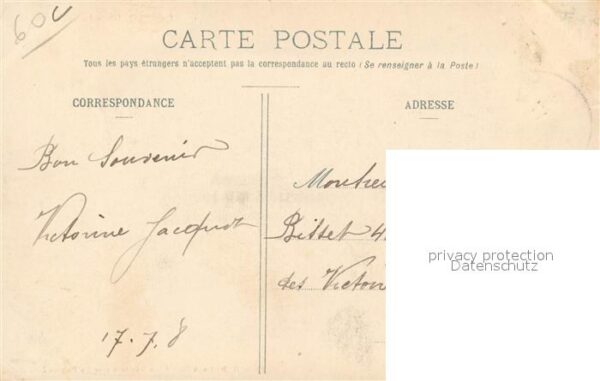 60c
CARTE POSTALE
Tous les pays étrangers n'acceptent pas la correspondance au recto (Se renseigner à la Poste)
CORRESPONDANCE
ADRESSE
Bon Souvenir
Victorine Jacquot
17.7.8
Bisset 4
des Victoir
privacy protection
Datenschutz